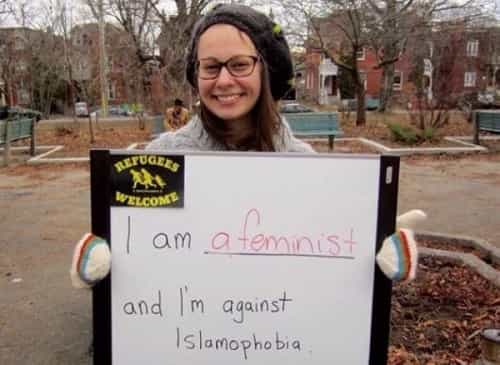 REFUGEES
WELCOME
I am a feminist
and I'm against
Islamophobia.